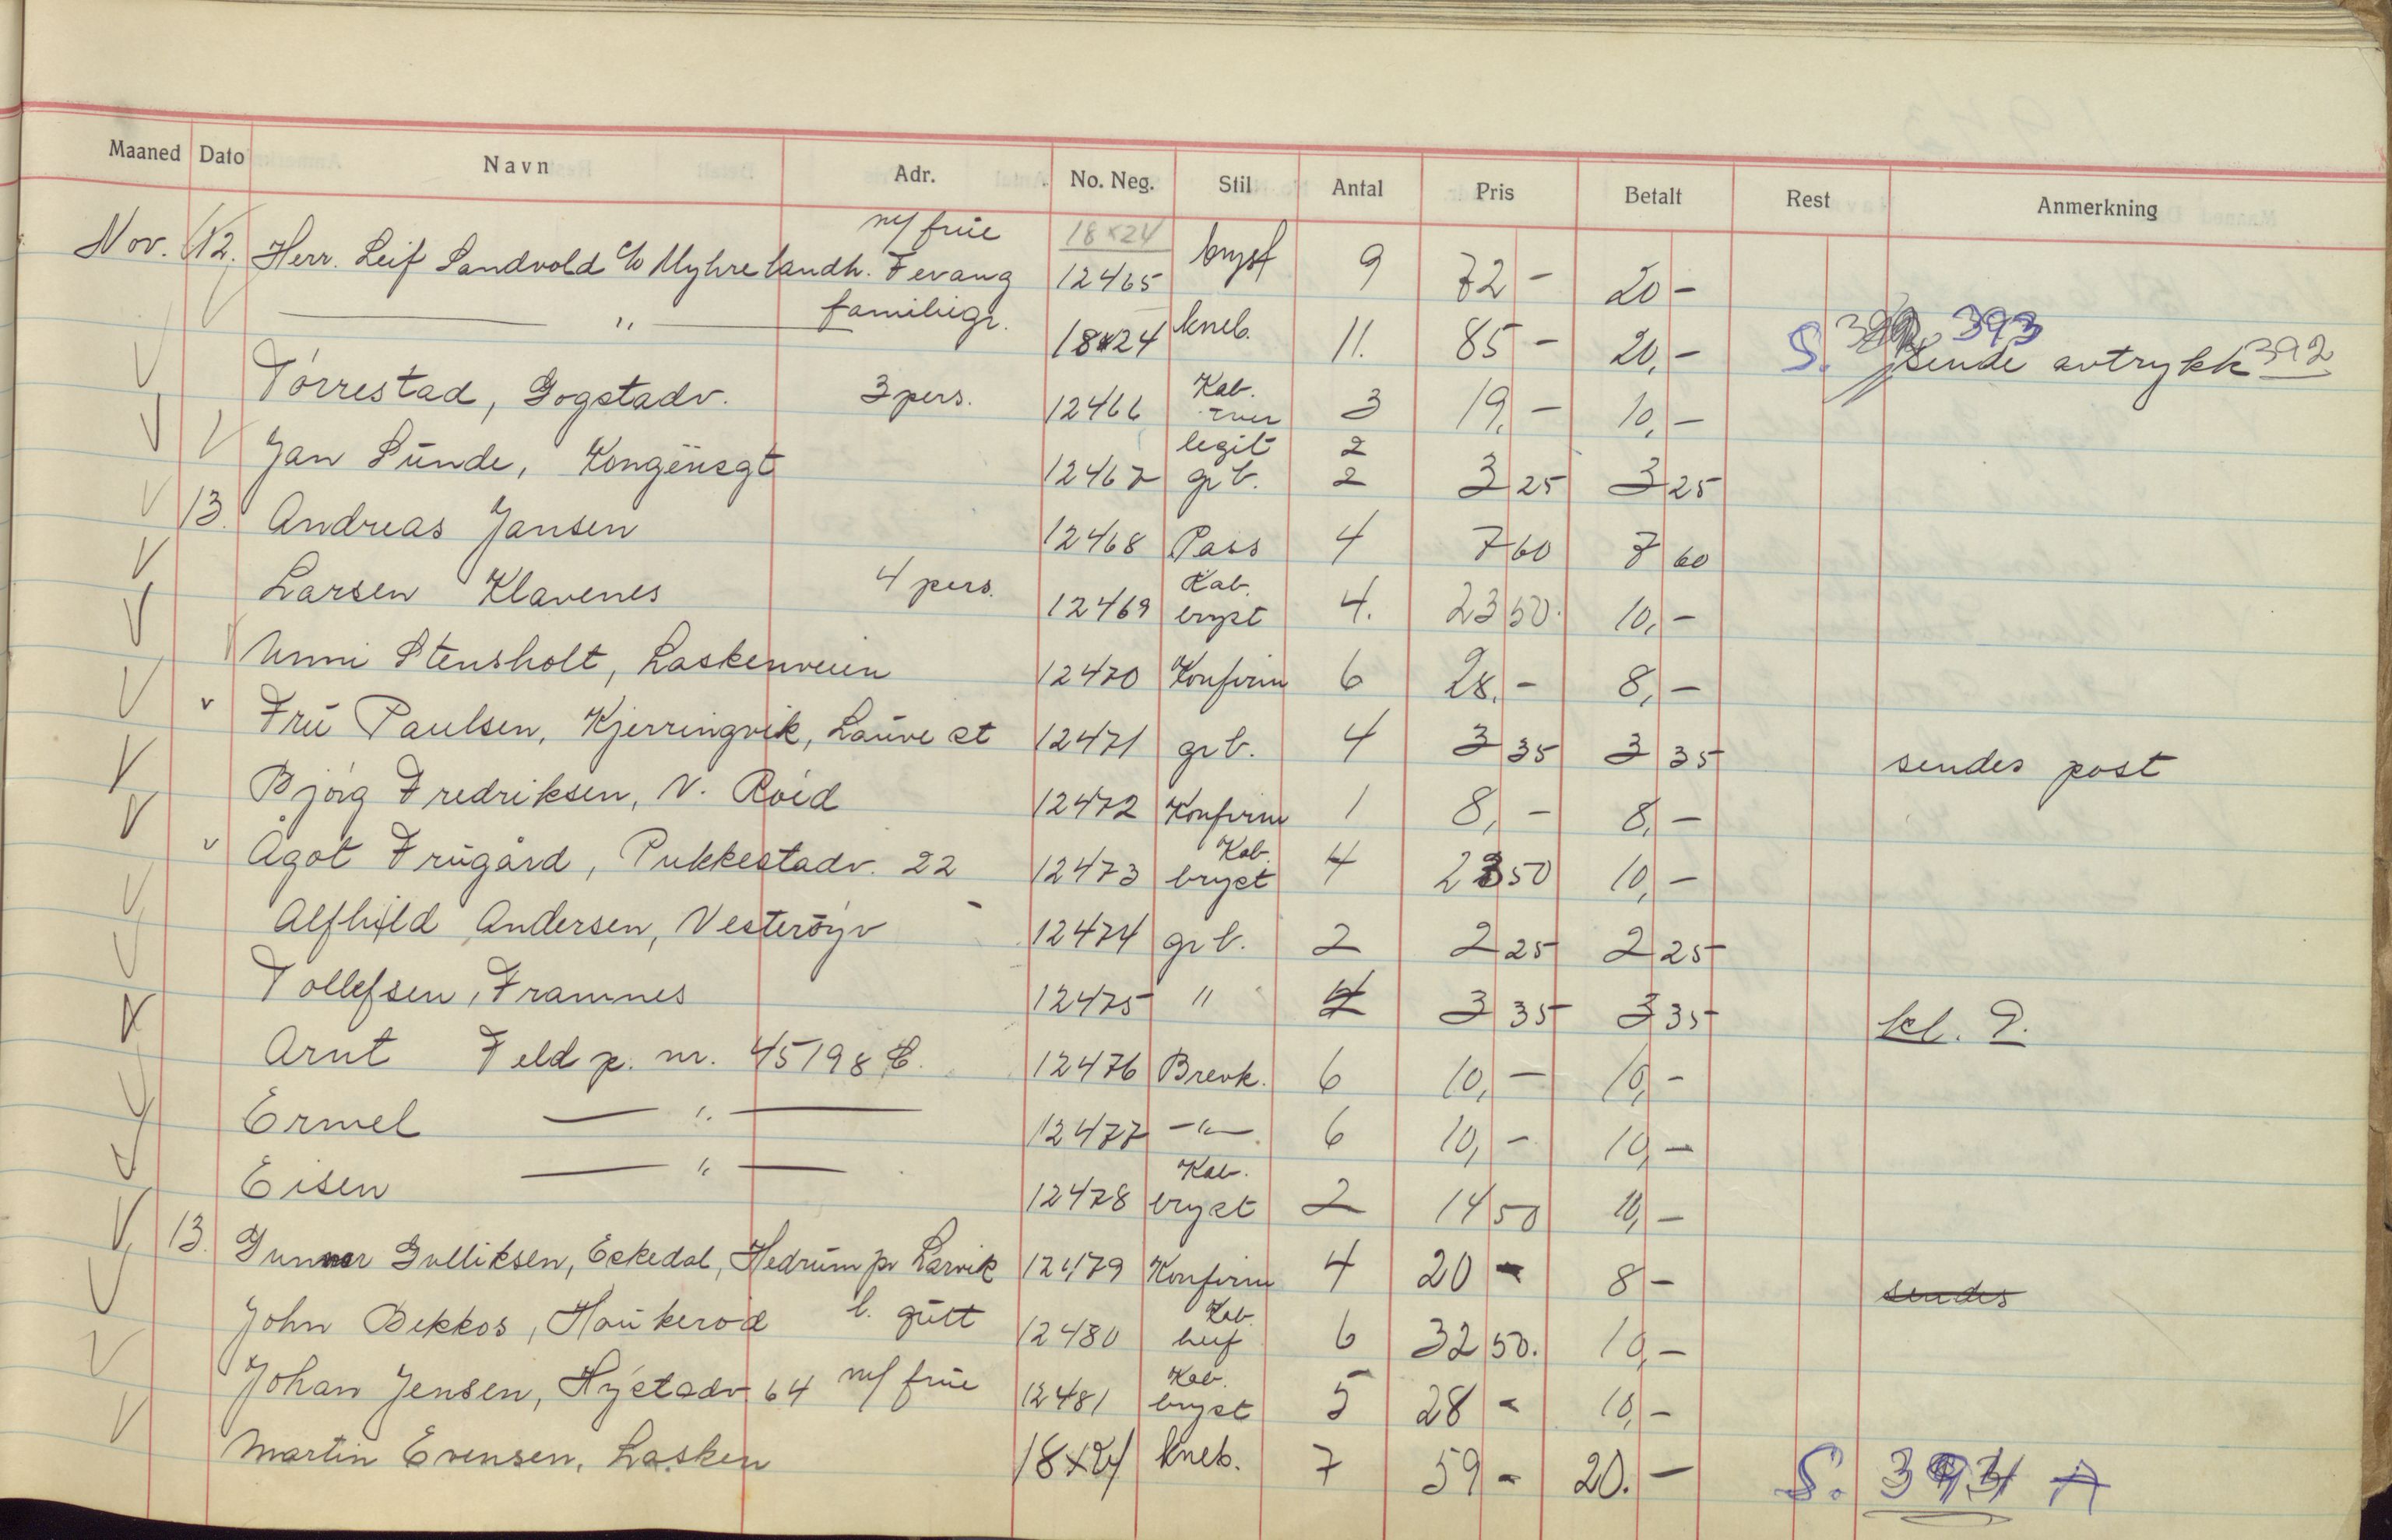 Maaned Dato Navn Adr. No. Neg. Stil Antal Pris Betalt Rest Anmerkning
Nov. 12. Herr. Leif Sandvold c/o Myhre landh. Fevang m/ frue 18x24 12465 bryst 9 72 - 20 -
— " — familiegr. 18x24 kneb. 11. 85 - 20,- S. 393 sende avtrykk 392
Tórrestad, Gogstadv. 3 pers. 12466 Kab. tver 3 19,- 10,-
Jan Sunde, Kongensgt 12467 legit 2 gr b. 2 3 25 3 25
13. Andreas Jansen 12468 Pass 4 7 60 7 60
Larsen Klavenes 4 pers. 12469 Kab. bryst 4. 23 50. 10,-
Unni Stensholt, Laskenveien 12470 Konfirm 6 28.- 8,-
v Fru Paulsen, Kjerringvik, Lauve st 12471 gr b. 4 3 35 3 35 sendes post
Bjórg Fredriksen, N. Róed 12472 Konfirm 1 8,- 8,-
v Ågot Frugård, Pukkestadv. 22 12473 Kab. bryst 4 23 50 10,-
Alfhild Andersen, Vesteröyv - 12474 gr b. 2 2 25 2 25
Tollefsen, Framnes 12475 " 4 3 35 3 35 kl. 2.
Arnt Feld p. nr. 45198 C. 12476 Brevk. 6 10,- 10,-
Ermel — " — 12477 -"- 6 10,- 10,-
Eisen — " — 12478 Kab. bryst 2 14 50 10,-
13. Gunnar Gulliksen, Eskedal, Hedrum pr Larvik 12479 Konfirm 4 20 - 8 - sendes
John Bekkos, Haukeród l. gutt 12480 Kab. 6 32 50. 10,-
Johan Jensen, Hýstadv. 64 m/ frue 12481 Kab. bryst 5 28 - 10,-
Martin Evensen, Lasken 18x24 kneb. 7 59 - 20.- S. 394 A